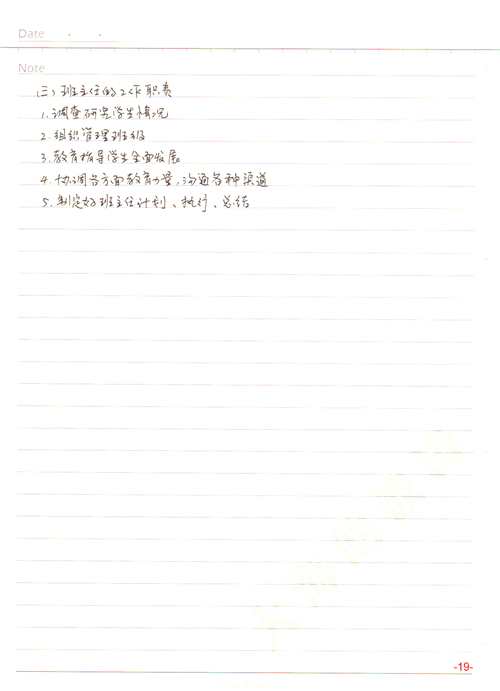 Date
Note
(三)班主任的工作职责
1.调查研究学生情况
2.组织管理班级
3.教育指导学生全面发展
4.协调各方面教育力量,沟通各种渠道
5.制定好班主任计划、执行、总结
-19-